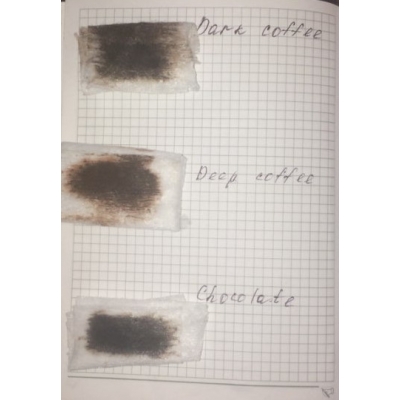 Dark coffee
Deep coffee
Chocolate